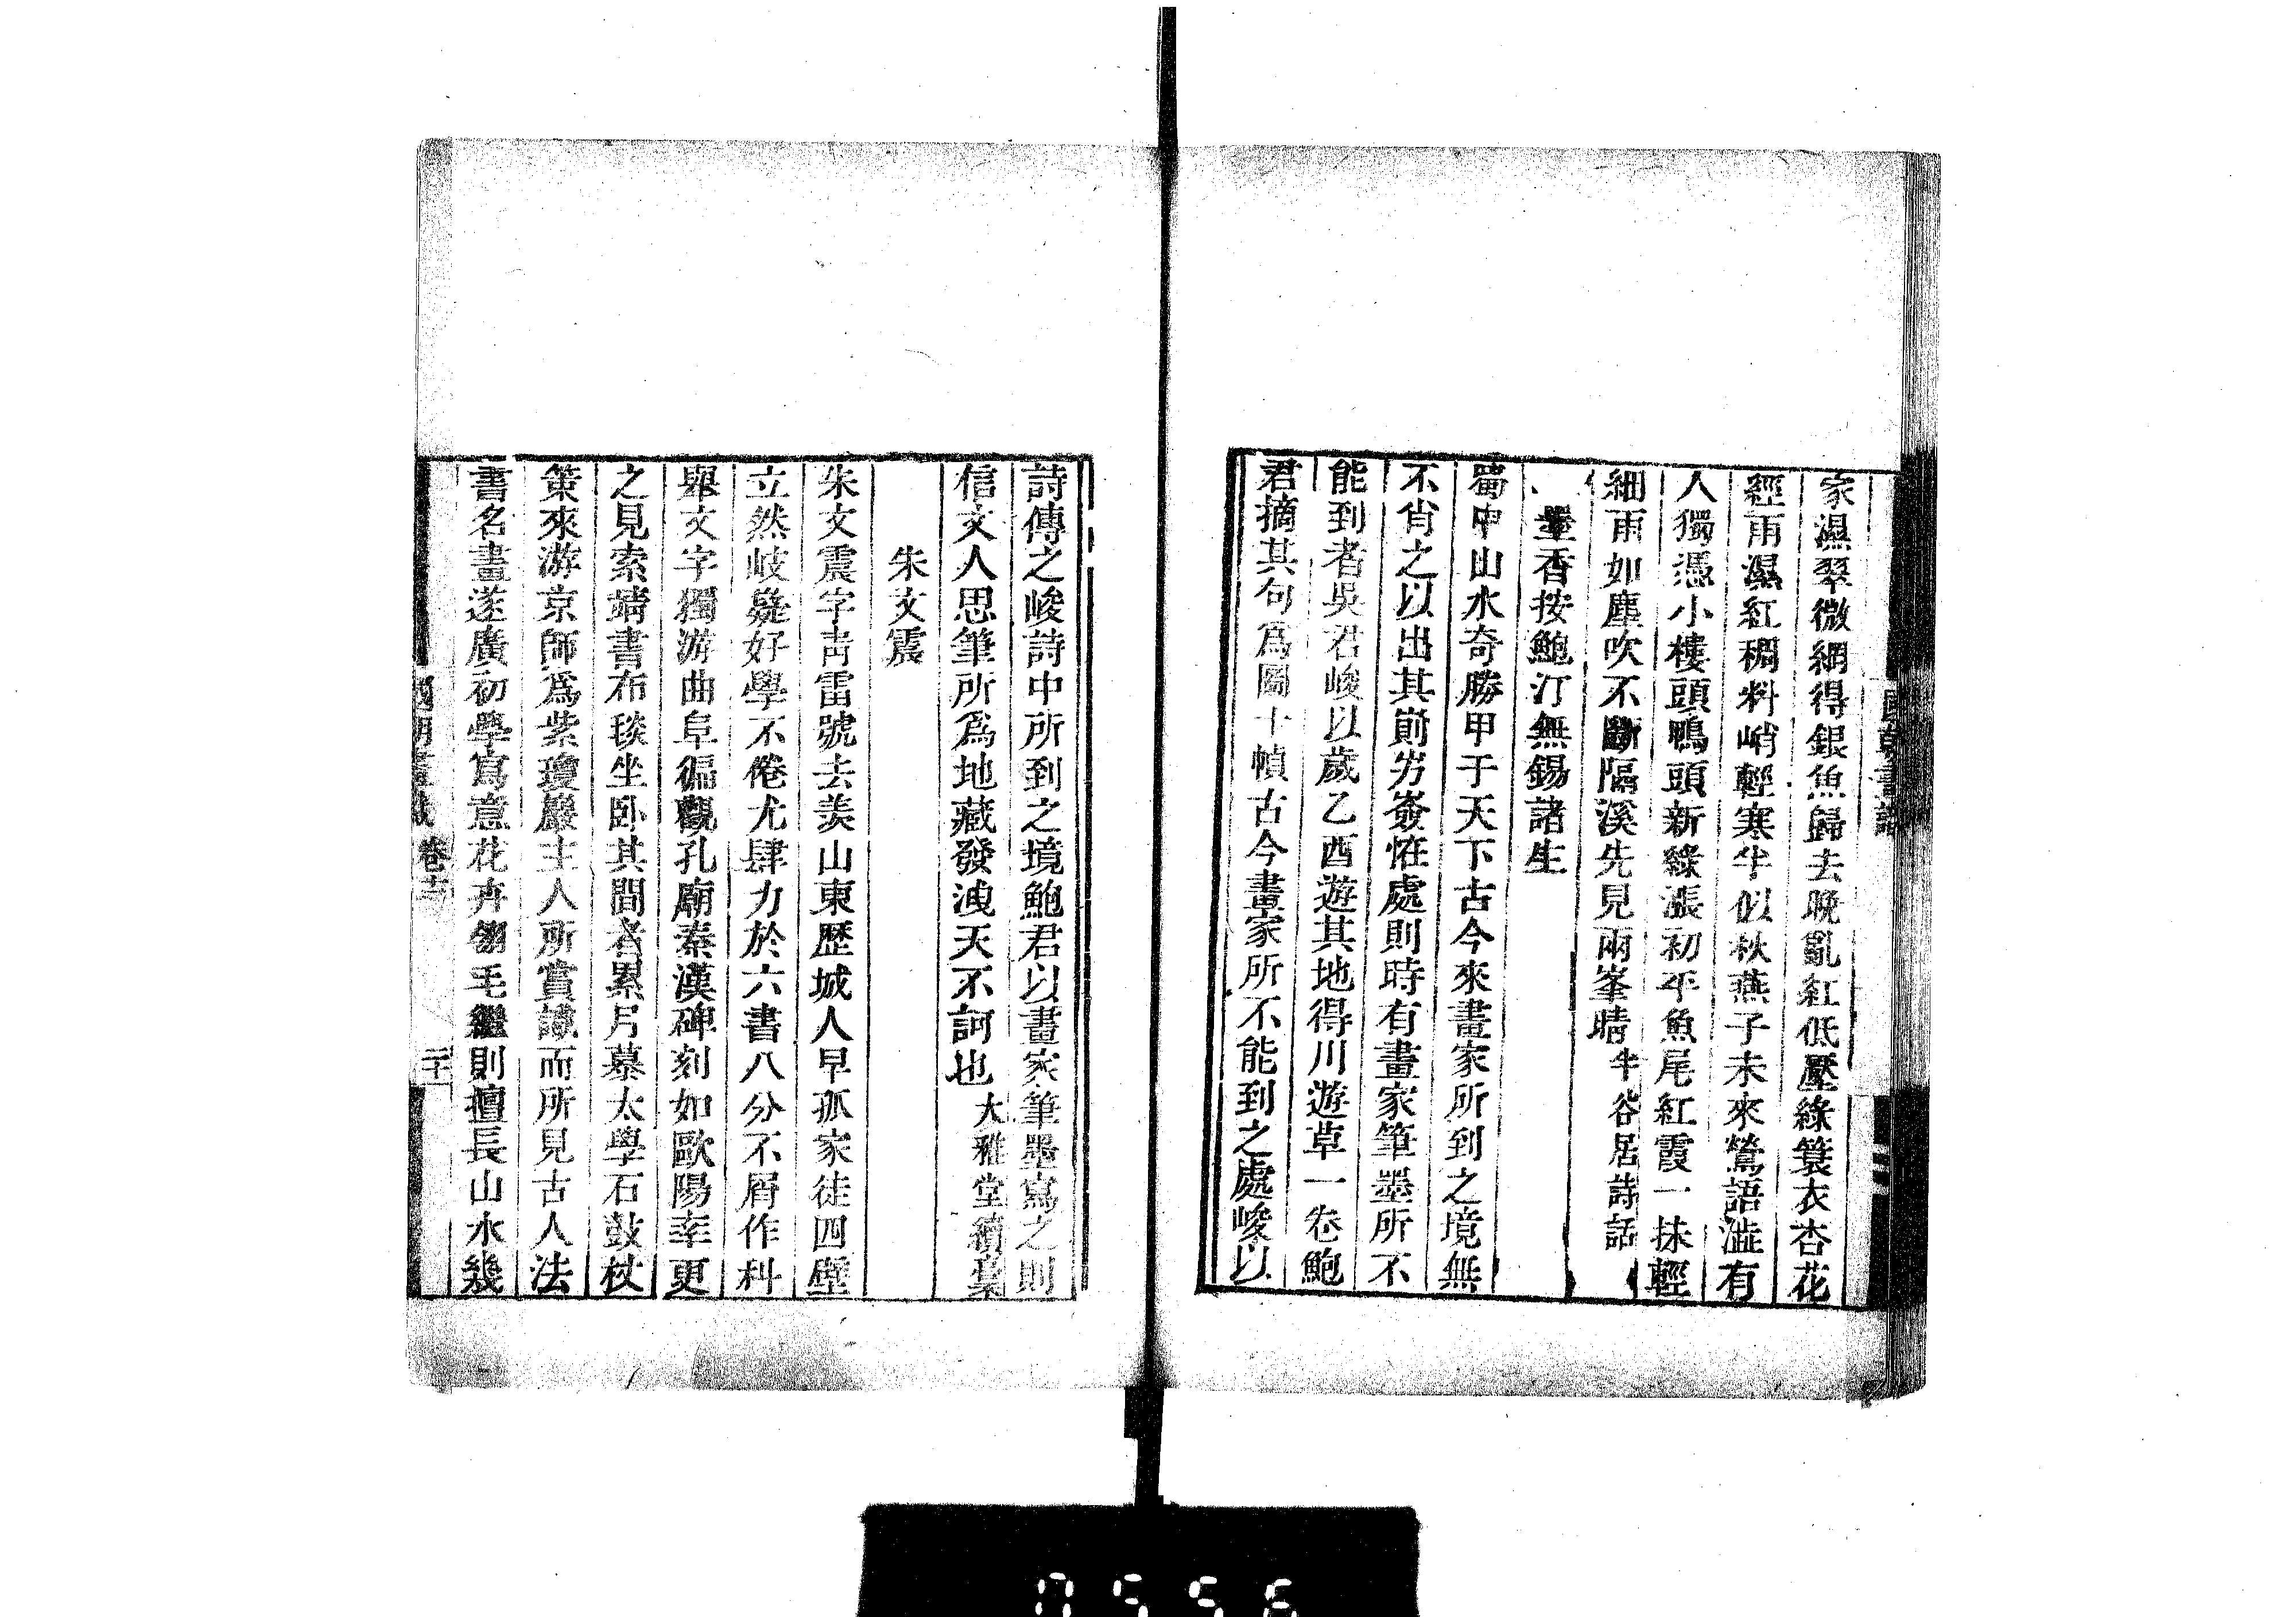 國朝畫識
家濕翠微網得銀魚歸去晚亂紅低壓綠簑衣杏花
經雨濕紅稠料峭輕寒半似秋燕子未來鶯語澁有
人獨憑小樓頭鴨頭新綠漲初平魚尾紅霞一抹輕
細雨如塵吹不斷隔溪先見兩峯晴半谷居詩話
墨香按鮑汀無錫諸生
蜀中山水奇勝甲于天下古今來畫家所到之境無
不肖之以出其崱屴嵚恠處則時有畫家筆墨所不
能到者吳君峻以歲乙酉遊其地得川遊草一卷鮑
君摘其句爲圖十幀古今畫家所不能到之處峻以
詩傳之峻詩中所到之境鮑君以畫家筆墨寫之則
信文人思筆所爲地藏發洩天不訶也大雅堂續稾
朱文震
朱文震字靑雷號去羨山東歷城人早孤家徒四壁
立然岐嶷好學不倦尤肆力於六書八分不屑作科
舉文字獨游曲阜徧觀孔廟秦漢碑刻如歐陽率更
之見索靖書布毯坐卧其間者累月慕太學石鼓杖
策來游京師爲紫瓊巖主人所賞識而所見古人法
書名畫遂廣初學寫意花卉翎毛繼則擅長山水幾
國朝畫識 卷十二 二十
0556